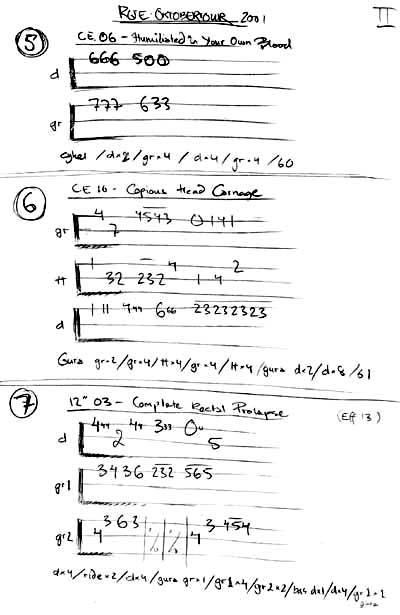 RUE-OKTOBERTOUR 2001
II
5
CE.06 - Humiliated in Your Own Blood
d 666 500
gr 777 633
/d×8/gr×4 / d×4/gr×4 /60
6
CE 16 - Copious Head Carnage
gr 4 7 4543 0141
H 1 32 232 4 1 4 2
d 1 11 444 666 23232323
Gura gr×2/gr×4/H×4/gr×4/H×4/gura d×2/d×8/61
7
12" 03 - Complete Rectal Prolapse
(Eff 13)
d 444 2 44 333 0 5
gr1 3436 232 565
gr2 4 363 % % 4 3 454
d×4/ride×2/d×4/gura gr×1/gr1×4/gr2×2/bas d×1/d×4/gr1×2
gura